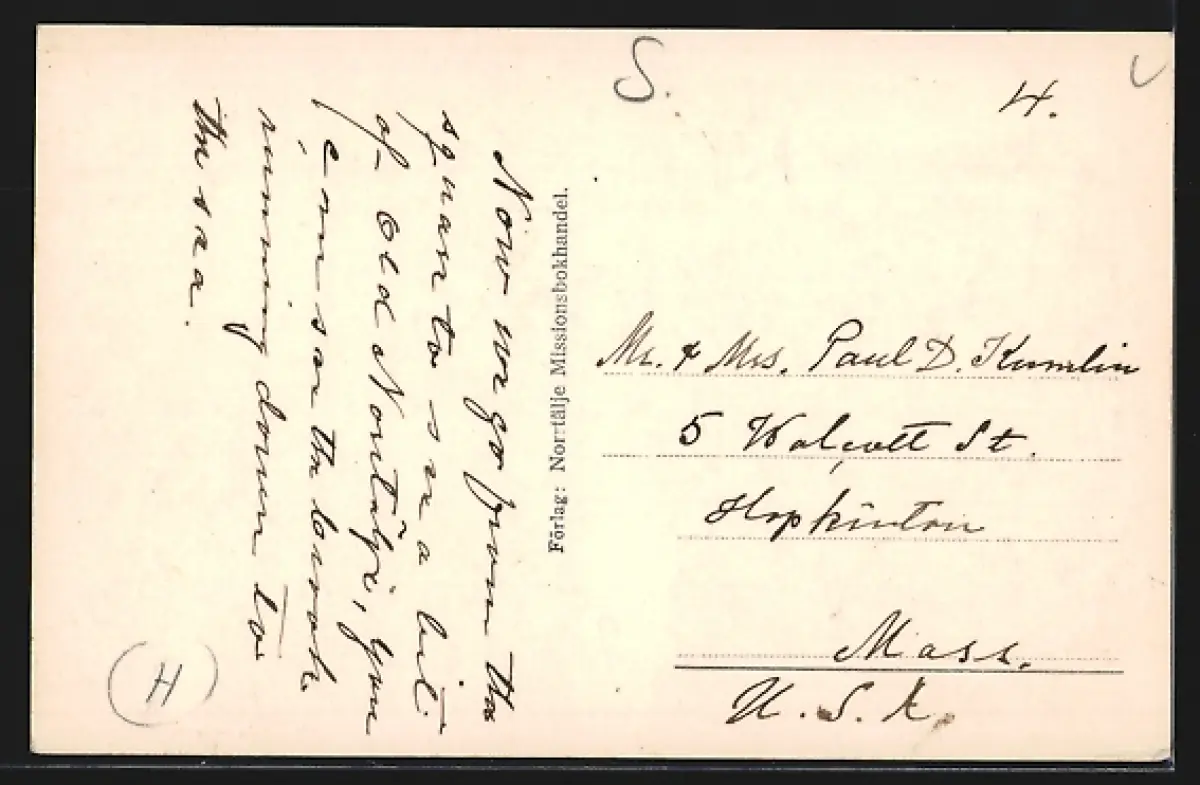 S.
4.
Now we go from the
square to see a bit
of old Norrtälje, you
can see the brook
running down to
the sea.
Förlag: Norrtälje Missionsbokhandel.
Mr. & Mrs. Paul D. Kumlin
5 Walcott St.
Hopkinton
Mass.
U. S. A.
H